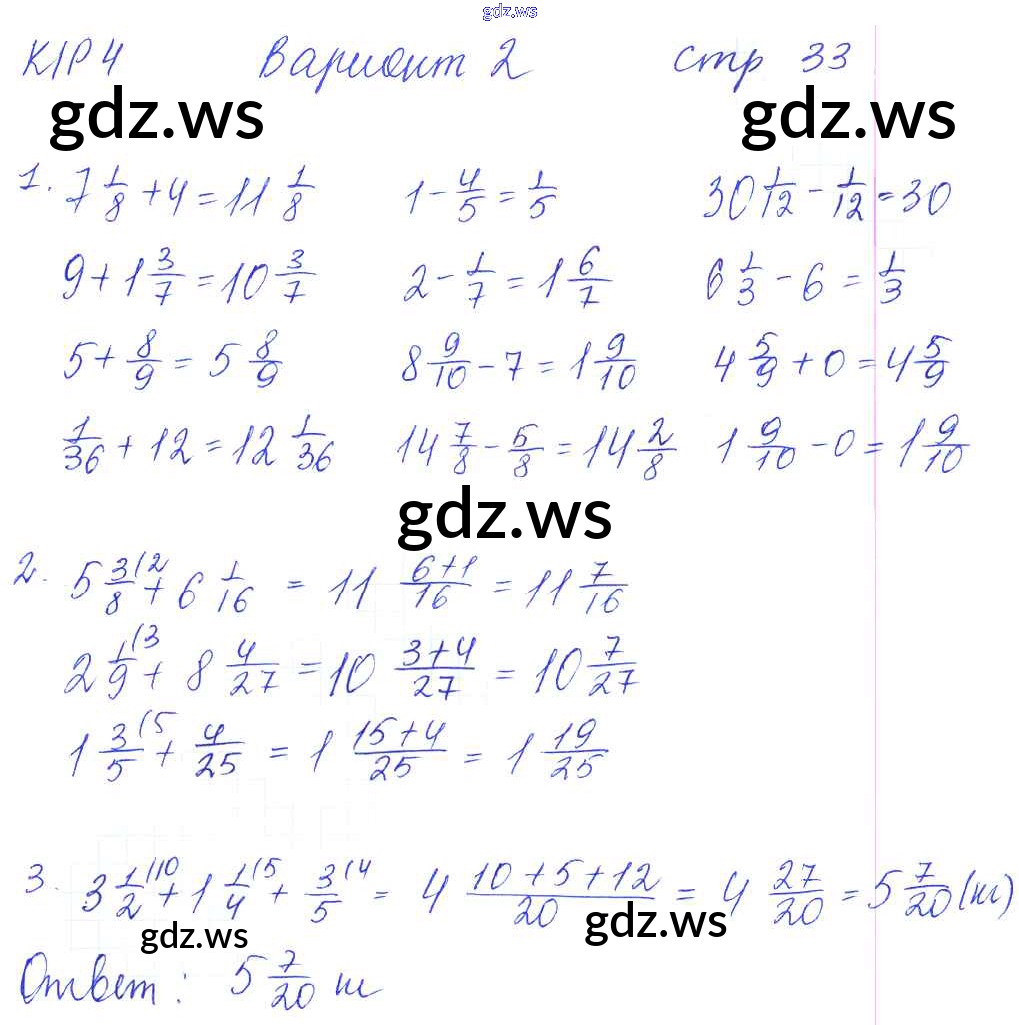 gdz.ws
К/Р 4 Вариант 2 стр 33
gdz.ws gdz.ws
1. 7 1/8 + 4 = 11 1/8 1 - 4/5 = 1/5 30 1/12 - 1/12 = 30
9 + 1 3/7 = 10 3/7 2 - 1/7 = 1 6/7 6 1/3 - 6 = 1/3
5 + 8/9 = 5 8/9 8 9/10 - 7 = 1 9/10 4 5/9 + 0 = 4 5/9
1/36 + 12 = 12 1/36 14 7/8 - 5/8 = 14 2/8 1 9/10 - 0 = 1 9/10
gdz.ws
2. 5 3/8 (2 + 6 1/16 = 11 (6+1)/16 = 11 7/16
2 1/9 (3 + 8 4/27 = 10 (3+4)/27 = 10 7/27
1 3/5 (5 + 4/25 = 1 (15+4)/25 = 1 19/25
3. 3 1/2 (10 + 1 1/4 (5 + 3/5 (4 = 4 (10+5+12)/20 = 4 27/20 = 5 7/20 (м)
gdz.ws gdz.ws
Ответ: 5 7/20 м